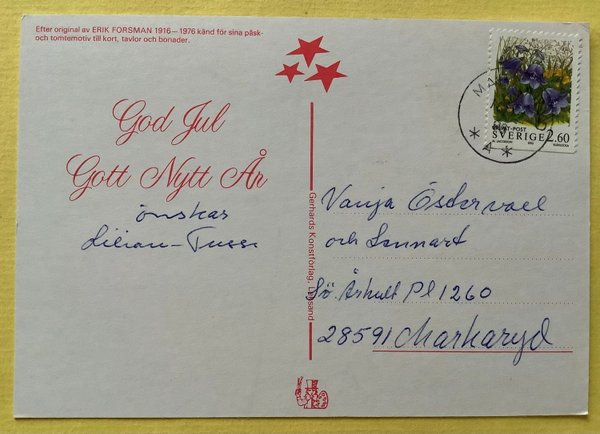 Efter original av ERIK FORSMAN 1916—1976 känd för sina påsk-
och tomtemotiv till kort, tavlor och bonader.
God Jul
Gott Nytt År
önskar
Lilian-Tusse
Gerhards Konstförlag, Lysand
BREVET-POST
SVERIGE 2.60
MA
Vanja Östervall
och Lennart
Sö. Århult Pl 1260
28591 Markaryd